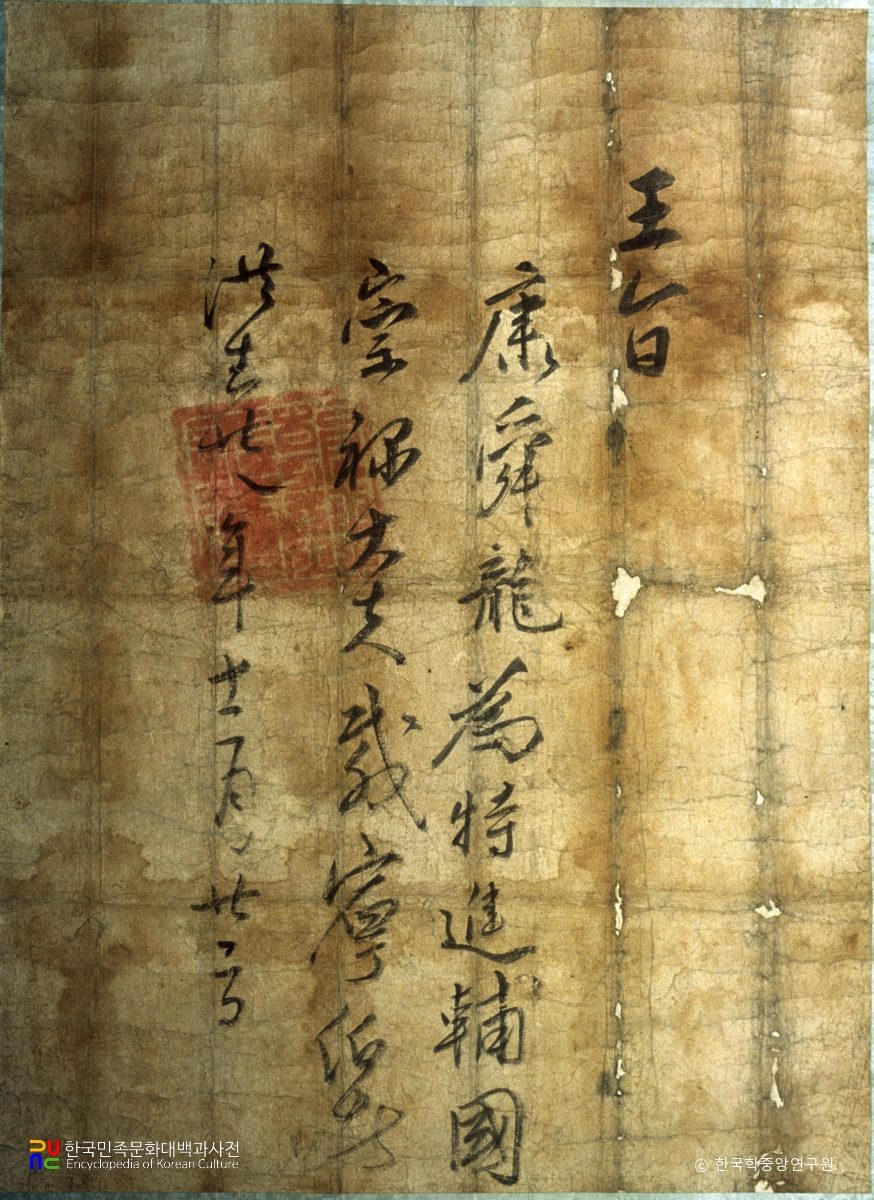 王旨
康舜龍爲特進輔國
崇祿大夫載寧伯者
洪武廿八年十二月廿二日
한국민족문화대백과사전
Encyclopedia of Korean Culture
ⓒ 한국학중앙연구원